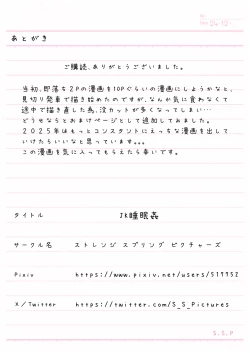 24・12・
あとがき
ご購読、ありがとうございました。
当初、即落ち2Pの漫画を10Pぐらいの漫画にしようかなと、
見切り発車で描き始めたのですが、なんか気に食わなくて
途中で描き直した為、没カットが多くなってしまい…
どうせならとおまけページとして追加しておきました。
2025年はもっとコンスタントにえっちな漫画を出して
いけたらいいなと思っています。。。
この漫画を気に入ってもらえたら幸いです。
タイトル JK睡眠姦
サークル名 ストレンジ スプリング ピクチャーズ
Pixiv https://www.pixiv.net/users/
X/Twitter https://twitter.com/S_S_Pictures
S.S.P